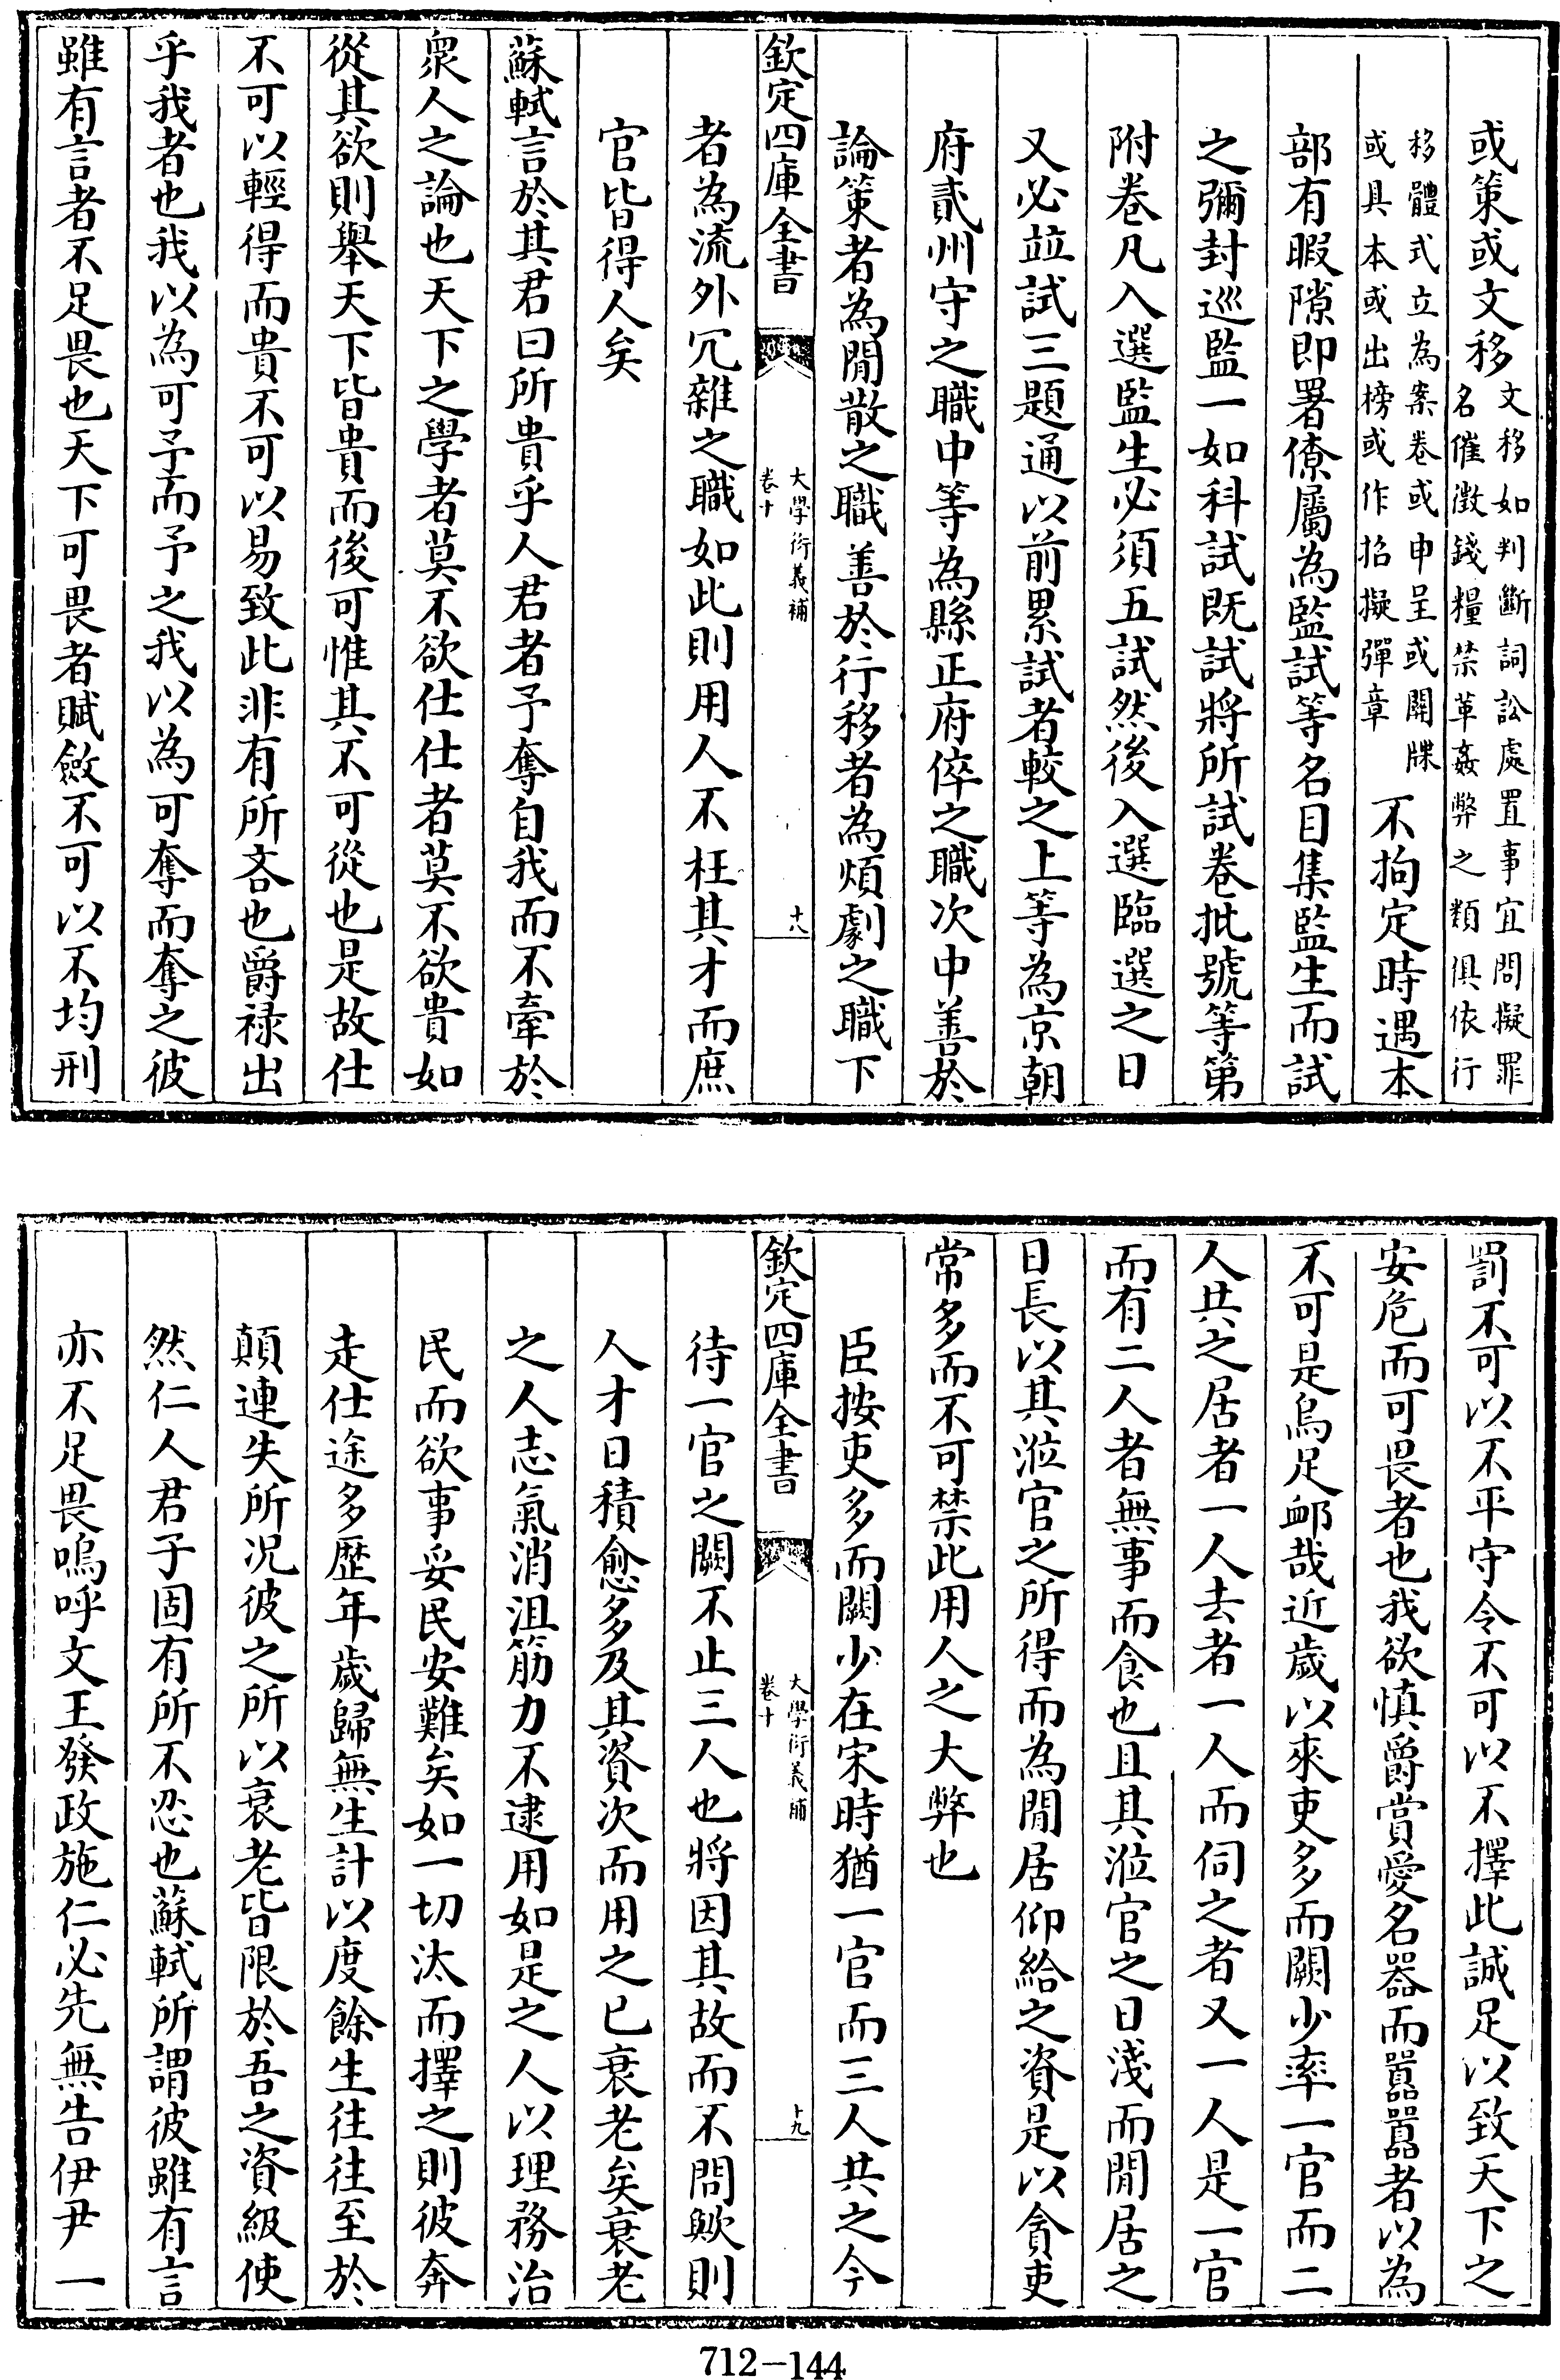 或策或文移文移如判斷詞訟處置事宜問擬罪
名催徴錢糧禁革姦弊之類俱依行
移體式立為案卷或申呈或關牒
或具本或出榜或作招擬彈章不拘定時遇本
部有暇隙即署僚屬為監試等名目集監生而試
之彌封巡監一如科試既試將所試卷批號等第
附卷凡入選監生必須五試然後入選臨選之日
又必竝試三題通以前累試者較之上等為京朝
府貳州守之職中等為縣正府倅之職次中善於
論策者為閒散之職善於行移者為煩劇之職下
欽定四庫全書
大學衍義補
卷十
十八
者為流外冗雜之職如此則用人不枉其才而庶
官皆得人矣
蘇軾言於其君曰所貴乎人君者予奪自我而不牽於
衆人之論也天下之學者莫不欲仕仕者莫不欲貴如
從其欲則舉天下皆貴而後可惟其不可從也是故仕
不可以輕得而貴不可以易致此非有所吝也爵禄出
乎我者也我以為可予而予之我以為可奪而奪之彼
雖有言者不足畏也天下可畏者賦斂不可以不均刑
罰不可以不平守令不可以不擇此誠足以致天下之
安危而可畏者也我欲慎爵賞愛名器而囂囂者以為
不可是烏足䘏哉近歲以來吏多而闕少率一官而二
人共之居者一人去者一人而伺之者又一人是一官
而有二人者無事而食也且其涖官之日淺而閒居之
日長以其涖官之所得而為閒居仰給之資是以貪吏
常多而不可禁此用人之大弊也
臣按吏多而闕少在宋時猶一官而三人共之今
欽定四庫全書
大學衍義補
卷十
十九
待一官之闕不止三人也將因其故而不問歟則
人才日積愈多及其資次而用之已衰老矣衰老
之人志氣消沮筋力不逮用如是之人以理務治
民而欲事妥民安難矣如一切汰而擇之則彼奔
走仕途多歴年歲歸無生計以度餘生往往至於
顛連失所况彼之所以衰老皆限於吾之資級使
然仁人君子固有所不忍也蘇軾所謂彼雖有言
亦不足畏嗚呼文王發政施仁必先無告伊尹一
712-144